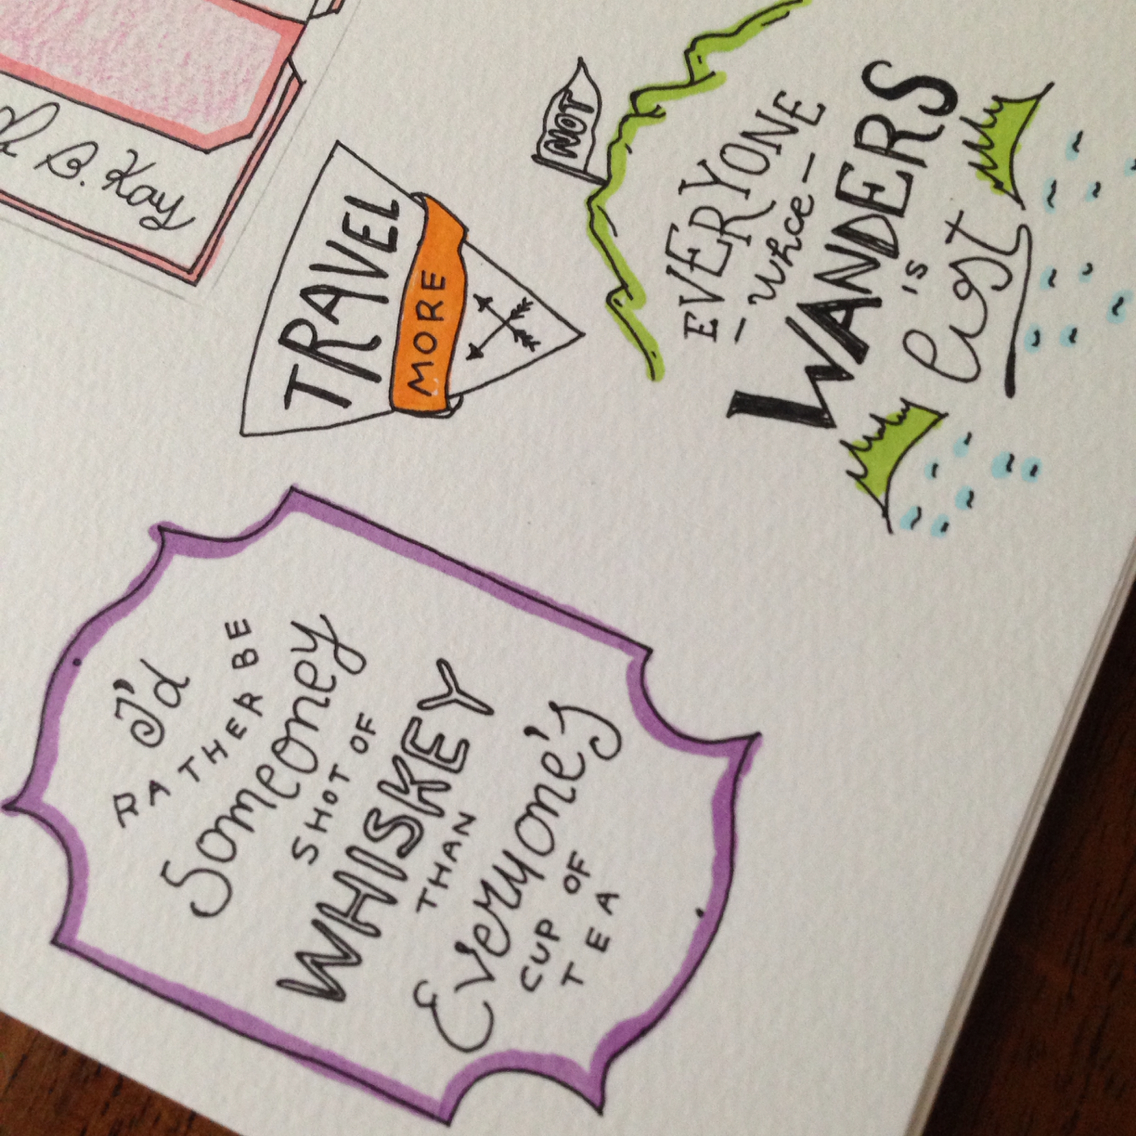 B. Kay
TRAVEL
MORE
NOT
EVERYONE
- whce -
WANDERS
is
lost
I'd
RATHER BE
Someoney
SHOT OF
WHISKEY
THAN
Everyone's
CUP OF
TEA